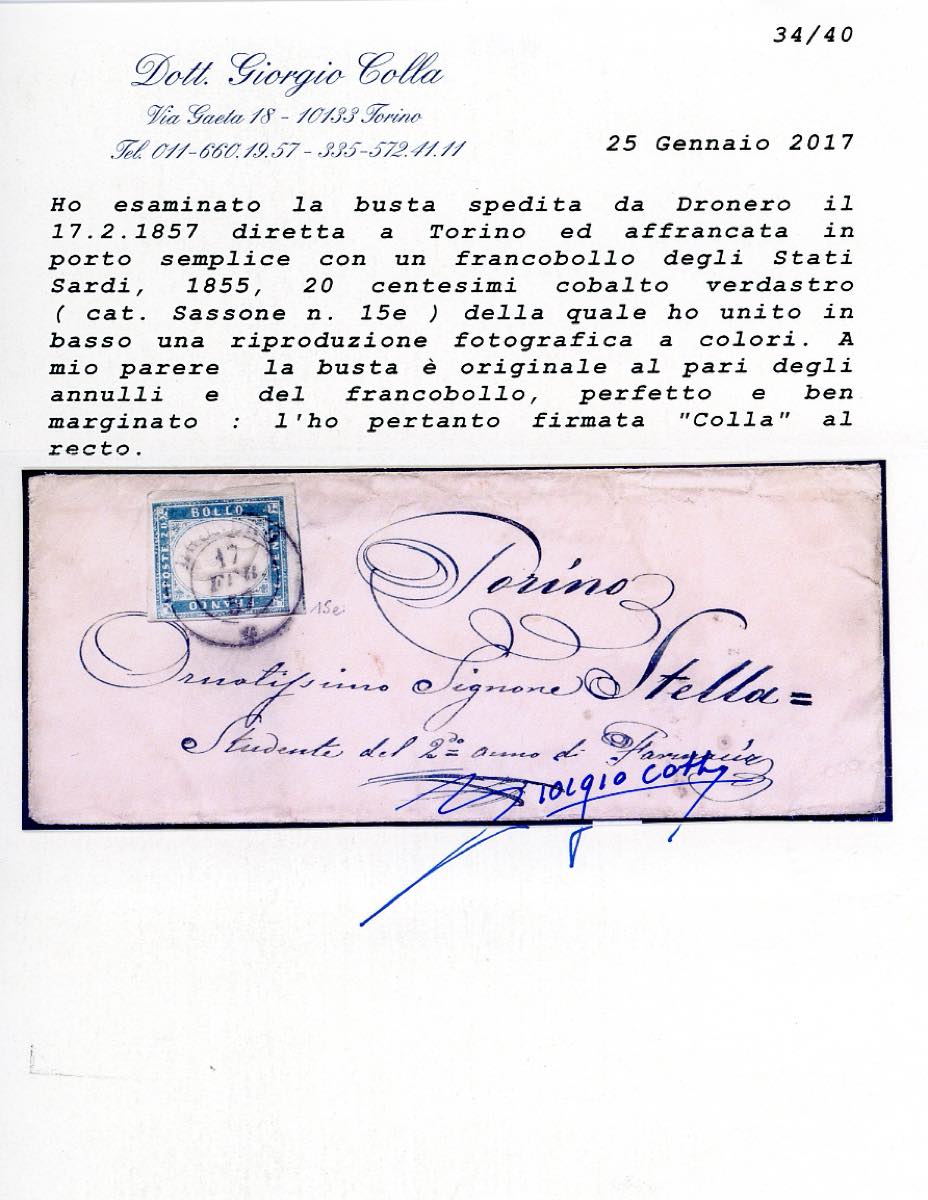 34/40
Dott. Giorgio Colla
Via Gaeta 18 - 10133 Torino
Tel. 011-660.19.57 - 335-572.41.11
25 Gennaio 2017
Ho esaminato la busta spedita da Dronero il
17.2.1857 diretta a Torino ed affrancata in
porto semplice con un francobollo degli Stati
Sardi, 1855, 20 centesimi cobalto verdastro
( cat. Sassone n. 15e ) della quale ho unito in
basso una riproduzione fotografica a colori. A
mio parere la busta è originale al pari degli
annulli e del francobollo, perfetto e ben
marginato : l'ho pertanto firmata "Colla" al
recto.
BOLLO
POSTE
FRANCO
17
FEB
15e
Torino
Ornatissimo Signore Stella =
Studente del 2do anno di
Giorgio Colla